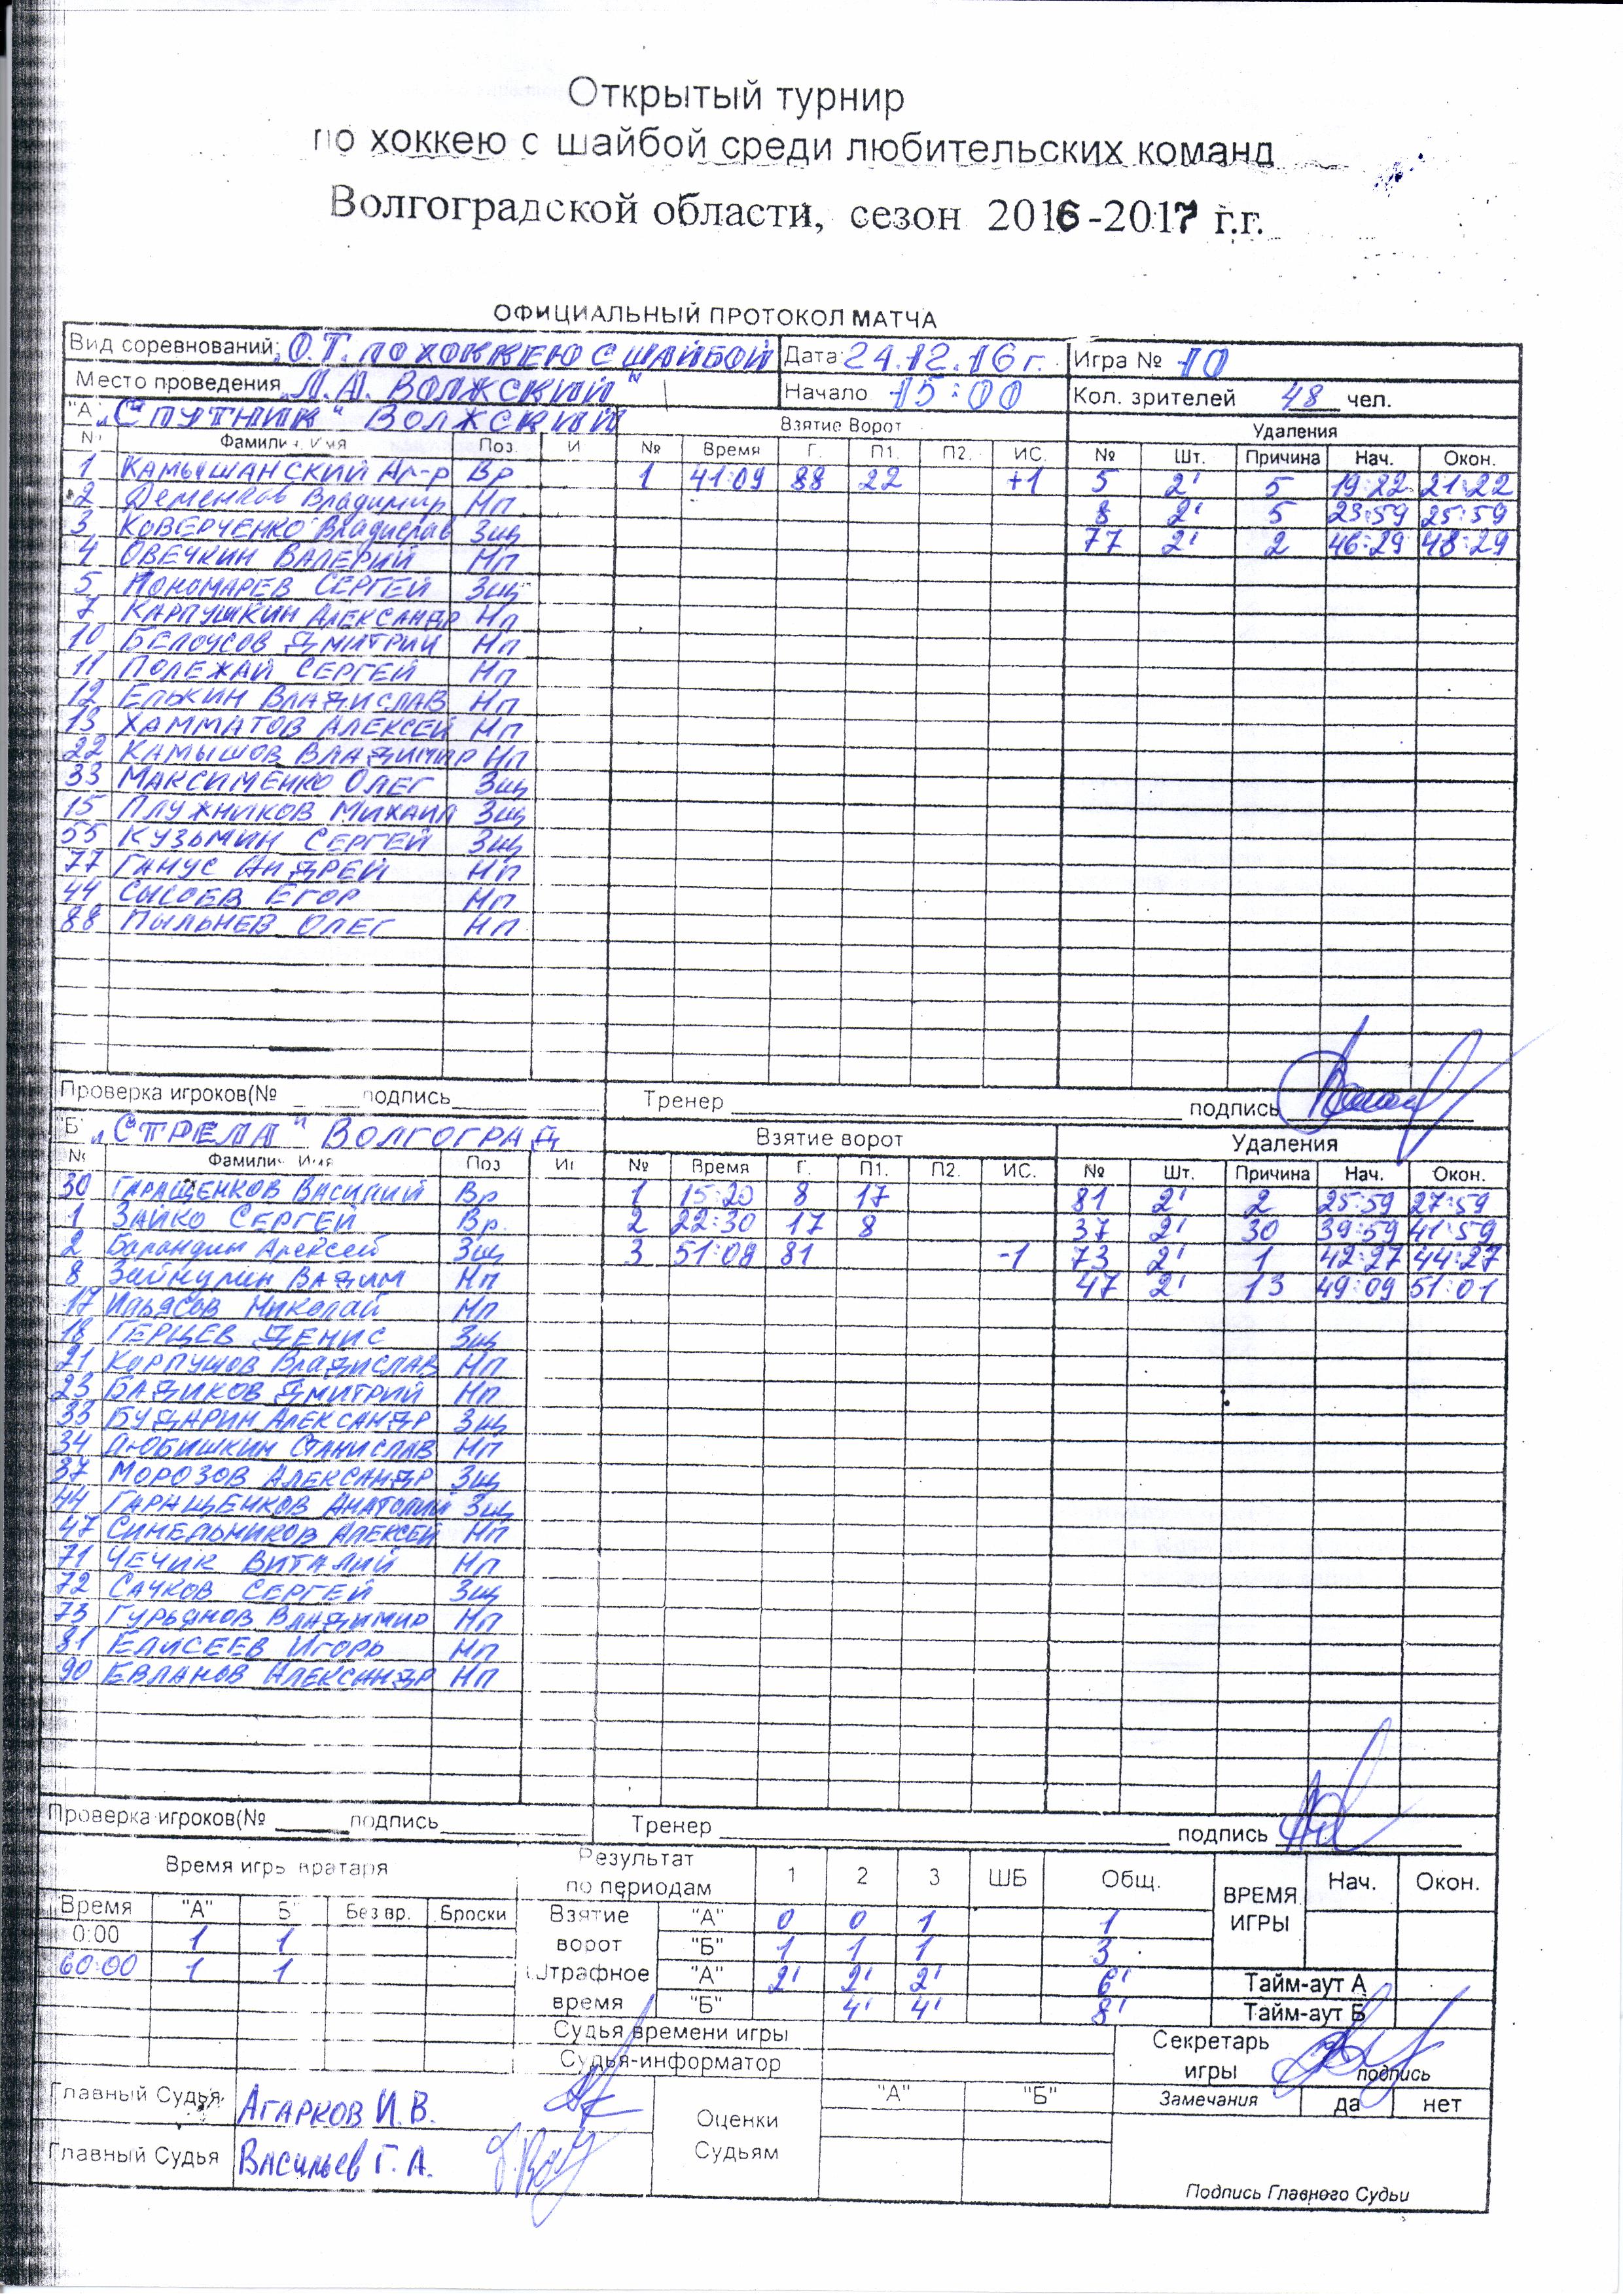 Открытый турнир
по хоккею с шайбой среди любительских команд
Волгоградской области, сезон 2016-2017 г.г.
ОФИЦИАЛЬНЫЙ ПРОТОКОЛ МАТЧА
Вид соревнований: О.Т. ПО ХОККЕЮ С ШАЙБОЙ Дата: 24.12.16 г. Игра № 10
Место проведения "Л.А. ВОЛЖСКИЙ" Начало 15:00 Кол. зрителей 48 чел.
"А" "СПУТНИК" ВОЛЖСКИЙ Взятие Ворот Удаления
№ Фамилия Имя Поз И № Время Г. П1. П2. ИС. № Шт. Причина Нач. Окон.
1 КАМЫШАНСКИЙ Ал-р Вр 1 41:09 88 22 +1 5 2' 5 19:22 21:22
2 Деменков Владимир Нп 8 2' 5 23:59 25:59
3 КОВЕРЧЕНКО Владислав Зщ 77 2' 2 46:29 48:29
4 ОВЕЧКИН ВАЛЕРИЙ Нп
5 ПОНОМАРЕВ СЕРГЕЙ Зщ
7 КАРПУШКИН АЛЕКСАНДР Нп
10 БЕЛОУСОВ ДМИТРИЙ Нп
11 ПОЛЕЖАЙ СЕРГЕЙ Нп
12 ЕЛЬКИН ВЛАДИСЛАВ Нп
13 ХАММАТОВ АЛЕКСЕЙ Нп
22 КАМЫШОВ ВЛАДИМИР Нп
33 МАКСИМЕНКО ОЛЕГ Зщ
15 ПЛУЖНИКОВ МИХАИЛ Зщ
55 КУЗЬМИН СЕРГЕЙ Зщ
77 ГАНУС АНДРЕЙ Нп
44 СЫСОЕВ ЕГОР Нп
88 ПЫЛЬНЕВ ОЛЕГ Нп
Проверка игроков(№ подпись Тренер подпись
"Б" "СТРЕЛА" ВОЛГОГРАД Взятие ворот Удаления
№ Фамилия Имя Поз Иг № Время Г. П1. П2. ИС. № Шт. Причина Нач. Окон.
30 ГАРАЩЕНКОВ ВАСИЛИЙ Вр 1 15:20 8 17 81 2' 2 25:59 27:59
1 ЗАЙКО СЕРГЕЙ Вр. 2 22:30 17 8 37 2' 30 39:59 41:59
2 Баландин Алексей Зщ 3 51:08 81 -1 73 2' 1 42:27 44:27
8 Зайнулин ВАДИМ Нп 47 2' 13 49:09 51:01
17 Ильясов Николай Нп
18 ГЕРЦЕВ ДЕНИС Зщ
21 КАРПУШОВ ВЛАДИСЛАВ Нп
23 БАДИКОВ ДМИТРИЙ Нп
33 БУДАРИН АЛЕКСАНДР Зщ
34 ЛЮБИШКИН СТАНИСЛАВ Нп
37 МОРОЗОВ АЛЕКСАНДР Зщ
44 ГАРАЩЕНКОВ АНАТОЛИЙ Зщ
47 СИНЕЛЬНИКОВ АЛЕКСЕЙ Нп
71 ЧЕЧИК ВИТАЛИЙ Нп
72 САЧКОВ СЕРГЕЙ Зщ
73 ГУРЬЯНОВ ВЛАДИМИР Нп
81 ЕЛИСЕЕВ ИГОРЬ Нп
90 ЕВЛАНОВ АЛЕКСАНДР Нп
Проверка игроков(№ подпись Тренер подпись
Время игры вратаря Результат по периодам 1 2 3 ШБ Общ. ВРЕМЯ ИГРЫ Нач. Окон.
Время "А" Б" Без вр. Броски Взятие "А" 0 0 1 1
0:00 1 1 ворот "Б" 1 1 1 3
60:00 1 1 Штрафное "А" 2' 2' 2' 6' Тайм-аут А
время "Б" 4' 4' 8' Тайм-аут Б
Судья времени игры Секретарь
Судья-информатор игры подпись
Главный Судья АГАРКОВ И.В. Оценки "А" "Б" Замечания да нет
Главный Судья ВАСИЛЬЕВ Г.А. Судьям
Подпись Главного Судьи